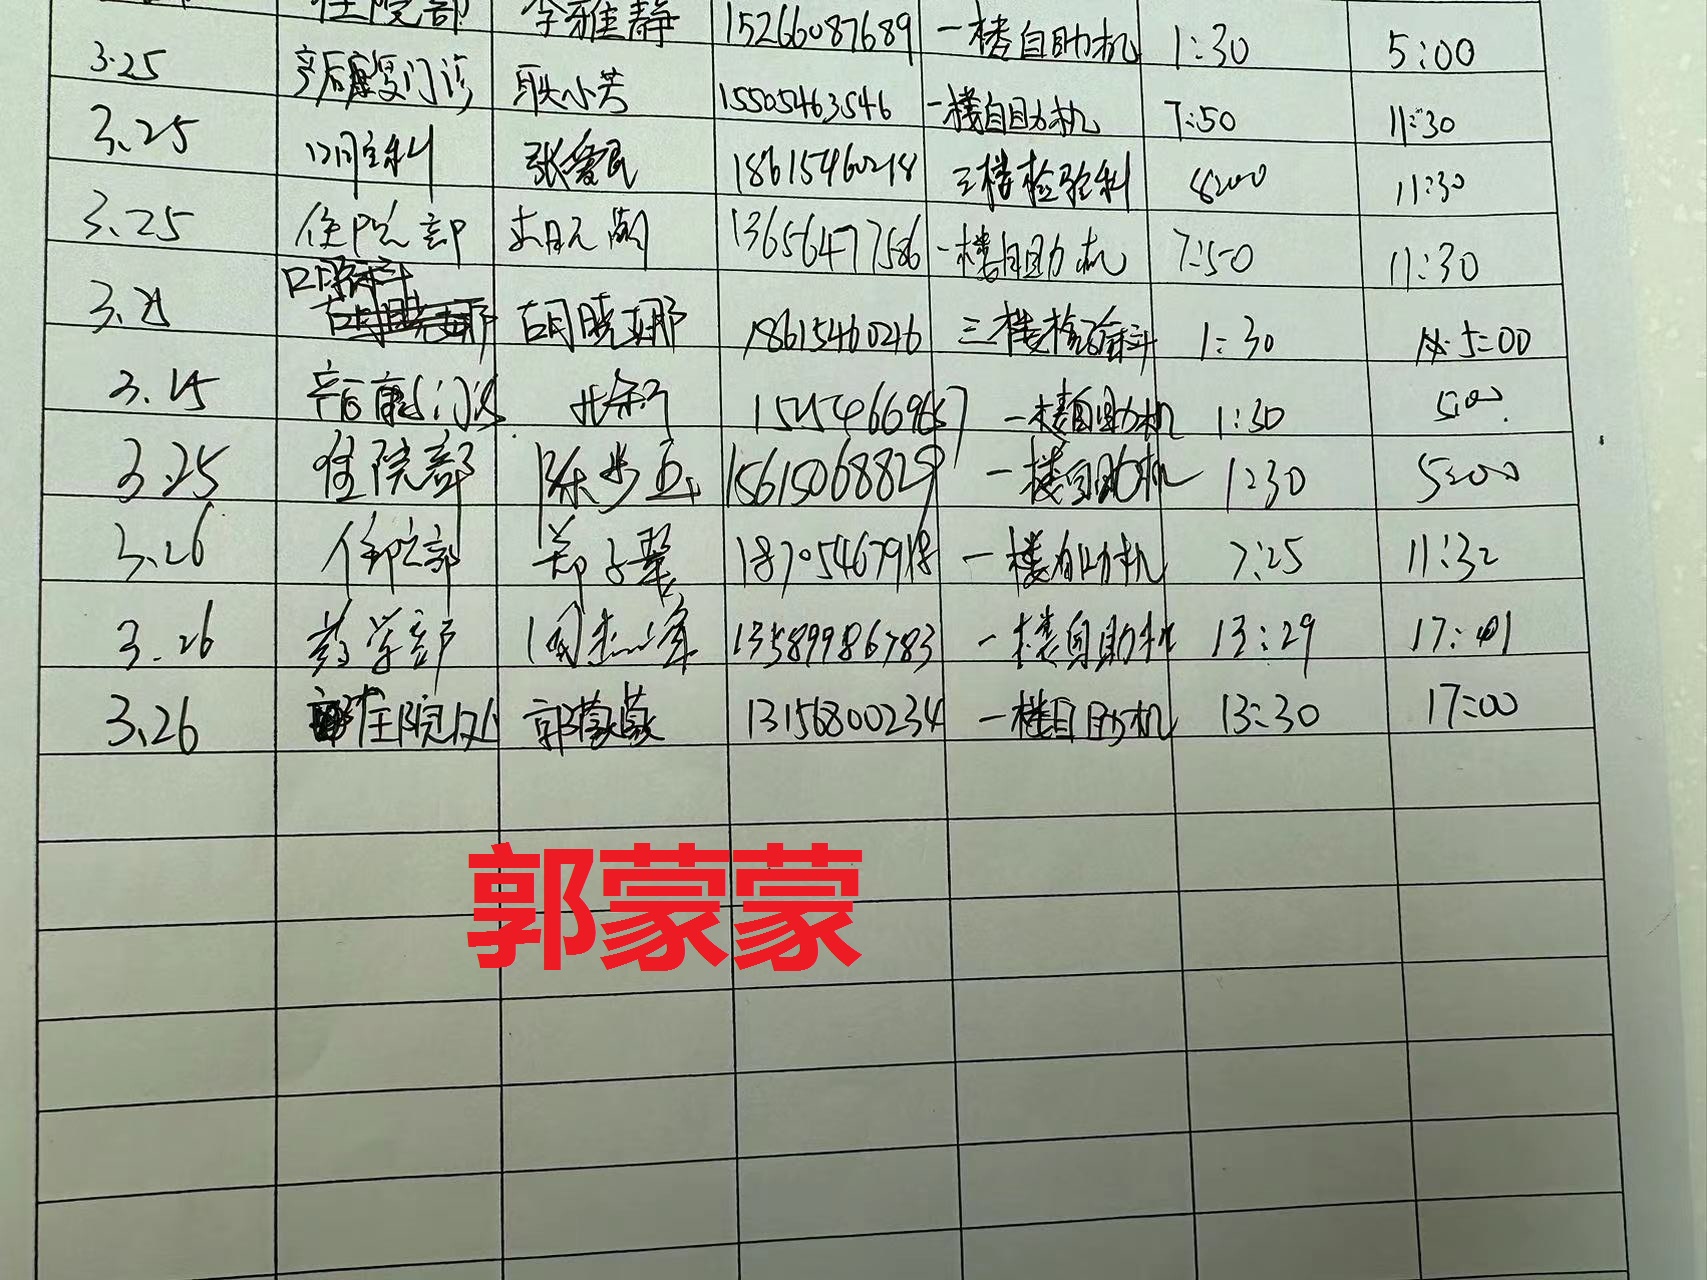 住院部 李雅静 15266087689 一楼自助机 1:30 5:00
3.25 产后康复门诊 耿小芳 15505463546 一楼自助机 7:50 11:30
3.25 口腔科 张爱民 18615460218 三楼检验科 8:00 11:30
3.25 住院部 13656477586 一楼自助机 7:50 11:30
口腔科
3.25 胡晓娜 胡晓娜 18615460246 三楼检验科 1:30 5:00
3.25 产后康复门诊 一楼自助机 1:30 5:00
3.25 住院部 陈步玉 15615068829 一楼自助机 1:30 5:00
3.26 住院部 郑子翠 18705467918 一楼自助机 7:25 11:32
3.26 药学部 周杰峰 13589986783 一楼自助机 13:29 17:01
3.26 住院处 郭蒙蒙 13156800234 一楼自助机 13:30 17:00
郭蒙蒙